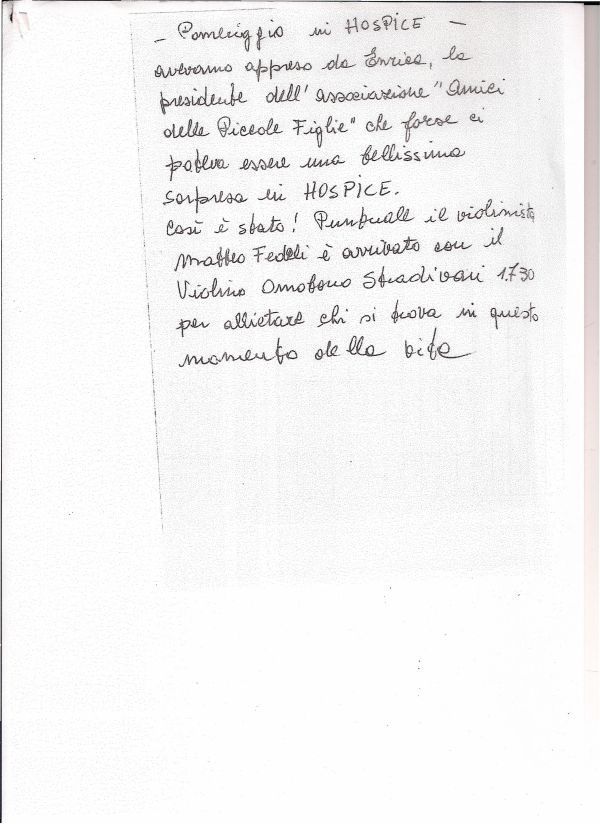 - Pomeriggio in HOSPICE -
avevamo appreso da Enrica, la
presidente dell'associazione "Amici
delle Piccole Figlie" che forse ci
poteva essere una bellissima
sorpresa in HOSPICE.
Così è stato! Puntuale il violinista
Matteo Fedeli è arrivato con il
Violino Omobono Stradivari 1730
per allietare chi si trova in questo
momento della vita